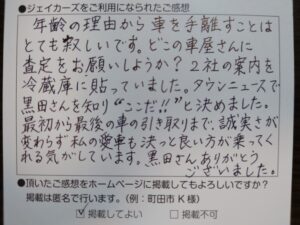 ●ジェイカーズをご利用になられたご感想
年齢の理由から車を手離すことは
とても寂しいです。どこの車屋さんに
査定をお願いしようか？２社の案内を
冷蔵庫に貼っていました。タウンニュースで
黒田さんを知り“ここだ!!”と決めました。
最初から最後の車の引き取りまで、誠実さが
変わらず私の愛車も決っと良い方が乗ってく
れる気がしています。黒田さんありがとう
ございました。
●頂いたご感想をホームページに掲載してもよろしいですか？
掲載は匿名で行います。（例：町田市 K 様）
☑掲載してよい　□掲載不可